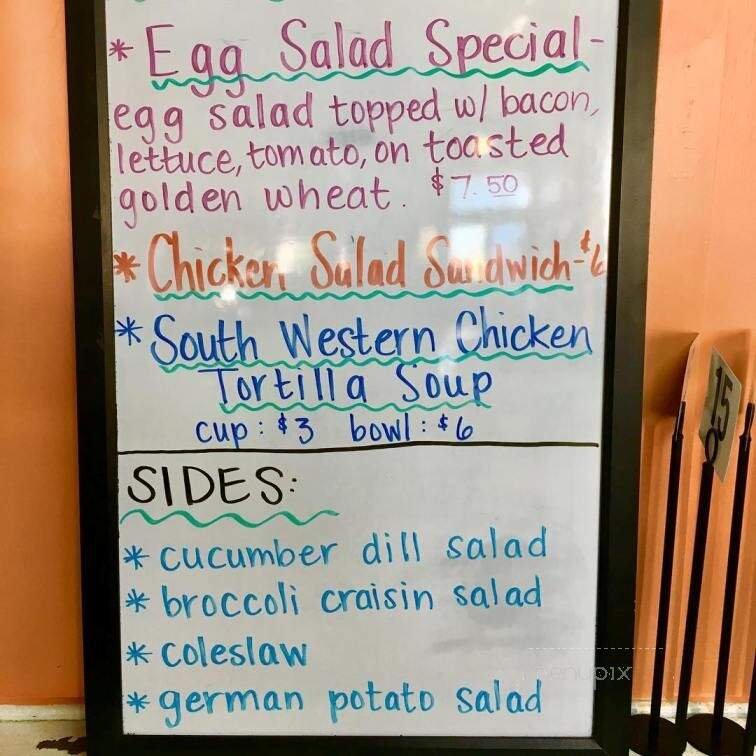 * Egg Salad Special-
egg salad topped w/ bacon,
lettuce, tomato, on toasted
golden wheat. $7.50
* Chicken Salad Sandwich-$6
* South Western Chicken
Tortilla Soup
cup: $3 bowl: $6
SIDES:
* cucumber dill salad
* broccoli craisin salad
* coleslaw
* german potato salad
15
menupix